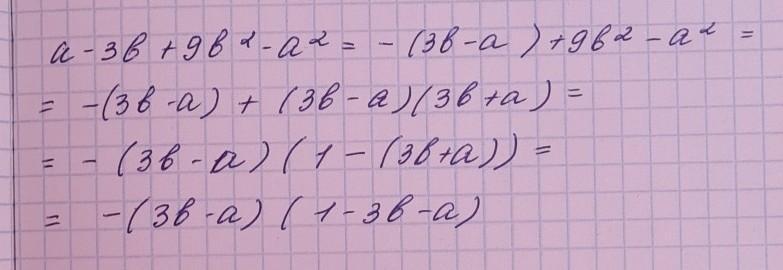 a - 3b + 9b² - a² = - (3b - a) + 9b² - a² =
= - (3b - a) + (3b - a)(3b + a) =
= - (3b - a) (1 - (3b + a)) =
= - (3b - a) (1 - 3b - a)